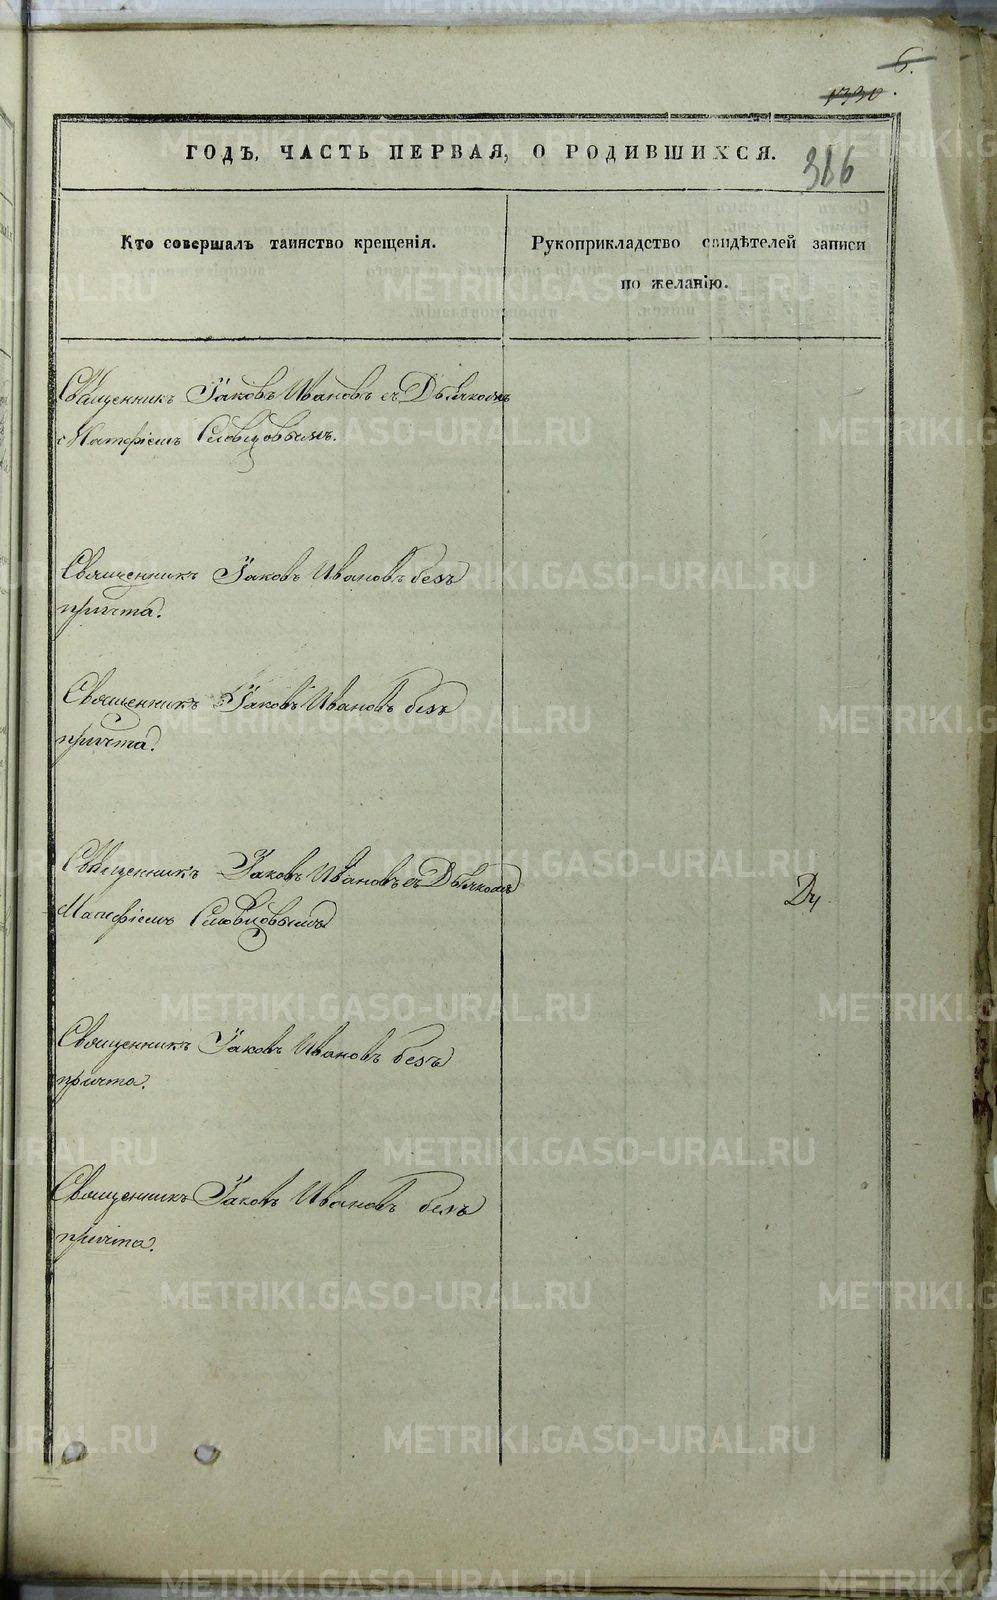 6.
1330.
ГОДЪ, ЧАСТЬ ПЕРВАЯ, О РОДИВШИХСЯ.
316
Кто совершалъ таинство крещенія.
Рукоприкладство свидѣтелей записи
по желанію.
Священникъ Іаковъ Ивановъ съ Дьячкомъ
Матфіемъ Словцовымъ.
Священникъ Іаковъ Ивановъ безъ
причта.
Священникъ Іаковъ Ивановъ безъ
причта.
Священникъ Іаковъ Ивановъ съ Дьячкомъ
Матфіемъ Словцовымъ
Священникъ Іаковъ Ивановъ безъ
причта.
Священникъ Іаковъ Ивановъ безъ
причта.
METRIKI.GASO-URAL.RU